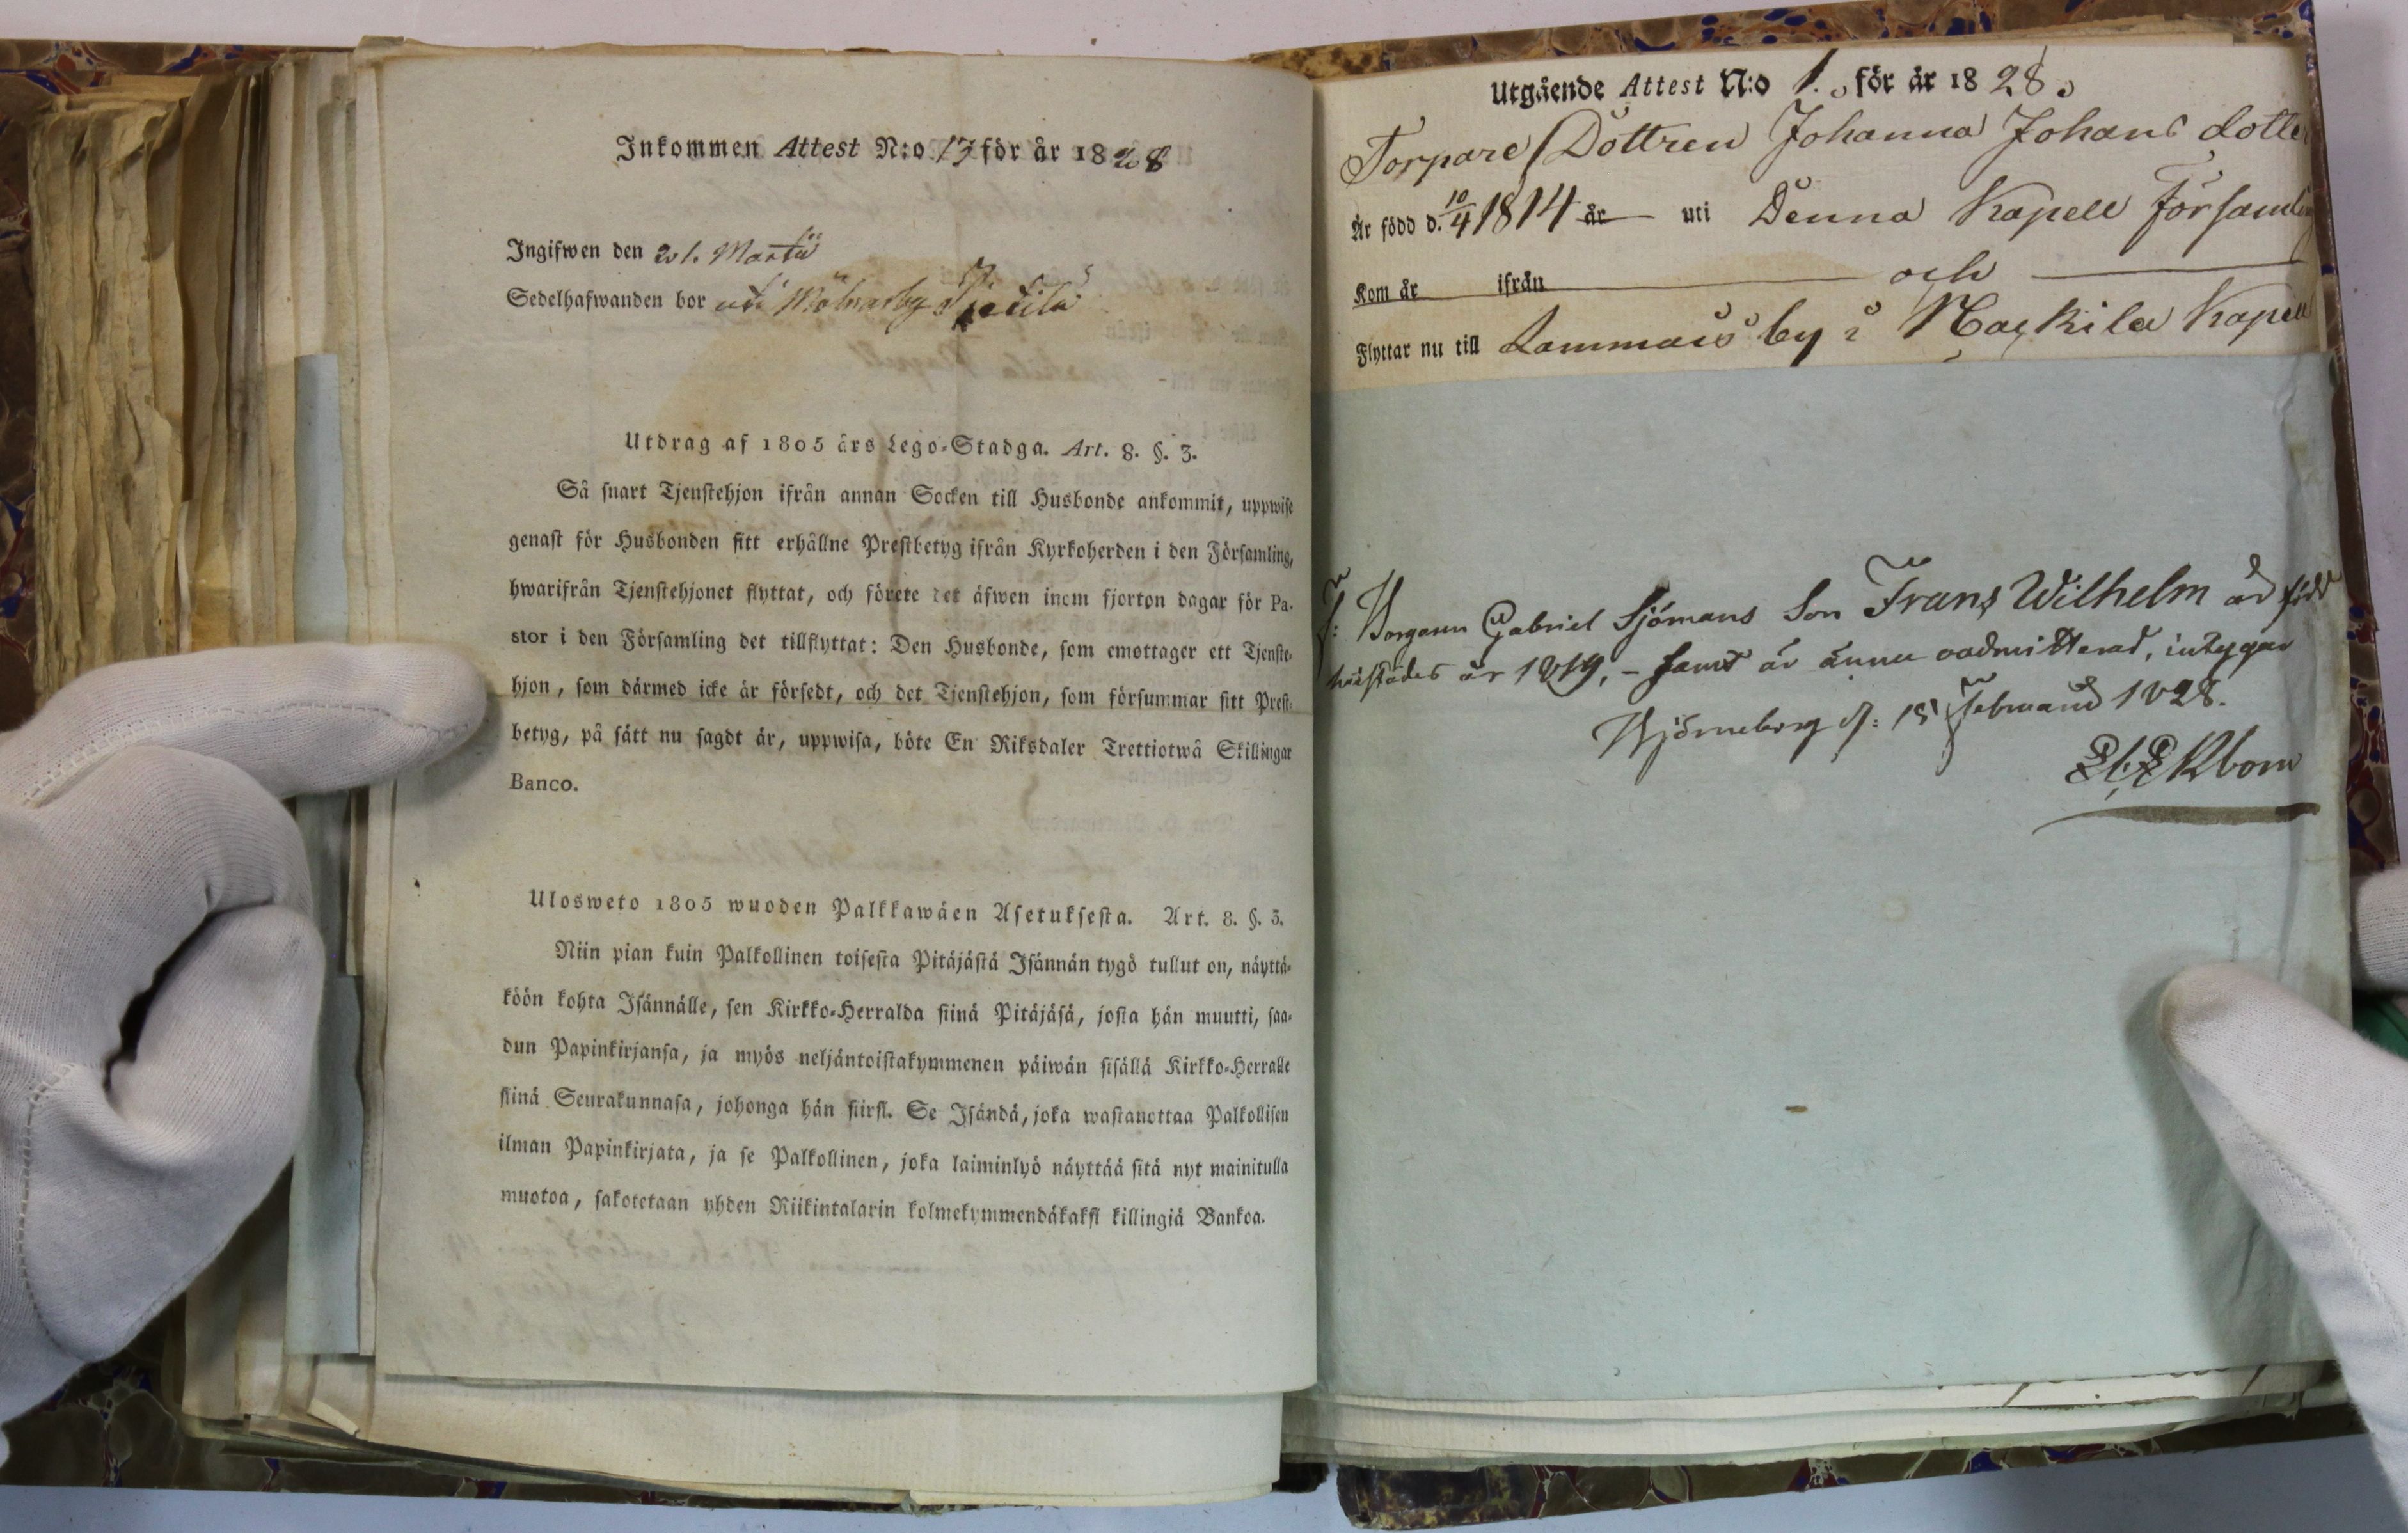 Inkommen Attest N:o 17 för år 1828
Ingifwen den 21. Martii
Sedelhafwanden bor uti
Utdrag af 1805 års Lego-Stadga. Art. 8. §. 3.
Så snart Tjenstehjon ifrån annan Socken till Husbonde ankommit, uppwise
genast för Husbonden sitt erhållne Prestbetyg ifrån Kyrkoherden i den Församling,
hwarifrån Tjenstehjonet flyttat, och förete det äfwen inom fjorton dagar för Pa-
stor i den Församling det tillflyttat: Den Husbonde, som emottager ett Tjenste-
hjon, som därmed icke är försedt, och det Tjenstehjon, som försummar sitt Prest-
betyg, på sätt nu sagdt är, uppwisa, böte En Riksdaler Trettiotwå Skillingar
Banco.
Ulosweto 1805 wuoden Palkkawäen Asetuksesta. Art. 8. §. 3.
Niin pian kuin Palkollinen toisesta Pitäjästä Isännän tygö tullut on, näyttä-
köön kohta Isännälle, sen Kirkko-Herralda siinä Pitäjäsä, josta hän muutti, saa-
dun Papinkirjansa, ja myös neljäntoistakymmenen päiwän sisällä Kirkko-Herralle
siinä Seurakunnasa, johonga hän siirsi. Se Isändä, joka wastanottaa Palkollisen
ilman Papinkirjata, ja se Palkollinen, joka laiminlyö näyttää sitä nyt mainitulla
muotoa, sakotetaan yhden Riikintalarin kolmekymmendäkaksi killingiä Bankoa.
Utgående Attest N:o 1. för år 1828.
Torpare Dottren Johanna Johans dotte
Är född d. 10/4 1814 år uti Denna Kapell Församli
Kom år ifrån och
Flyttar nu till Lammais by i Kapell
Gabriel Sjömans Son Frans Wilhelm är född
härstädes år 1819, - samt är ännu oadmitterad, intygar
Björneborg d: 15 Februarii 1828.
Ekbom